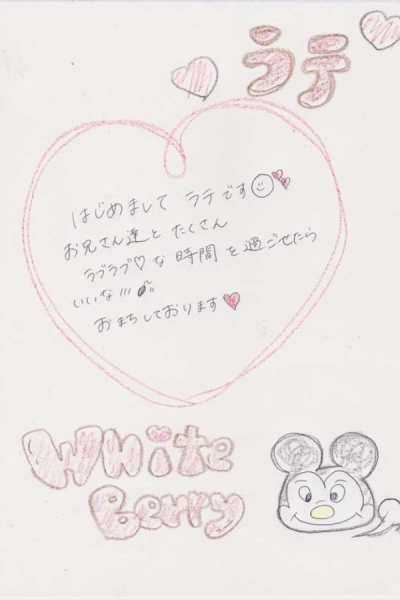 ラテ
はじめまして ラテです
お兄さん達と たくさん
ラブラブ♡な 時間 を過ごせたら
いいな///
おまちしております
White
Berry